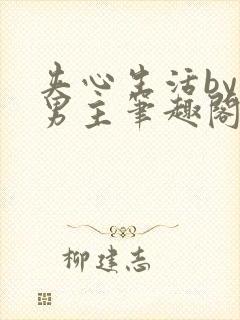 失心生活by
男主笔趣阁
柳建志